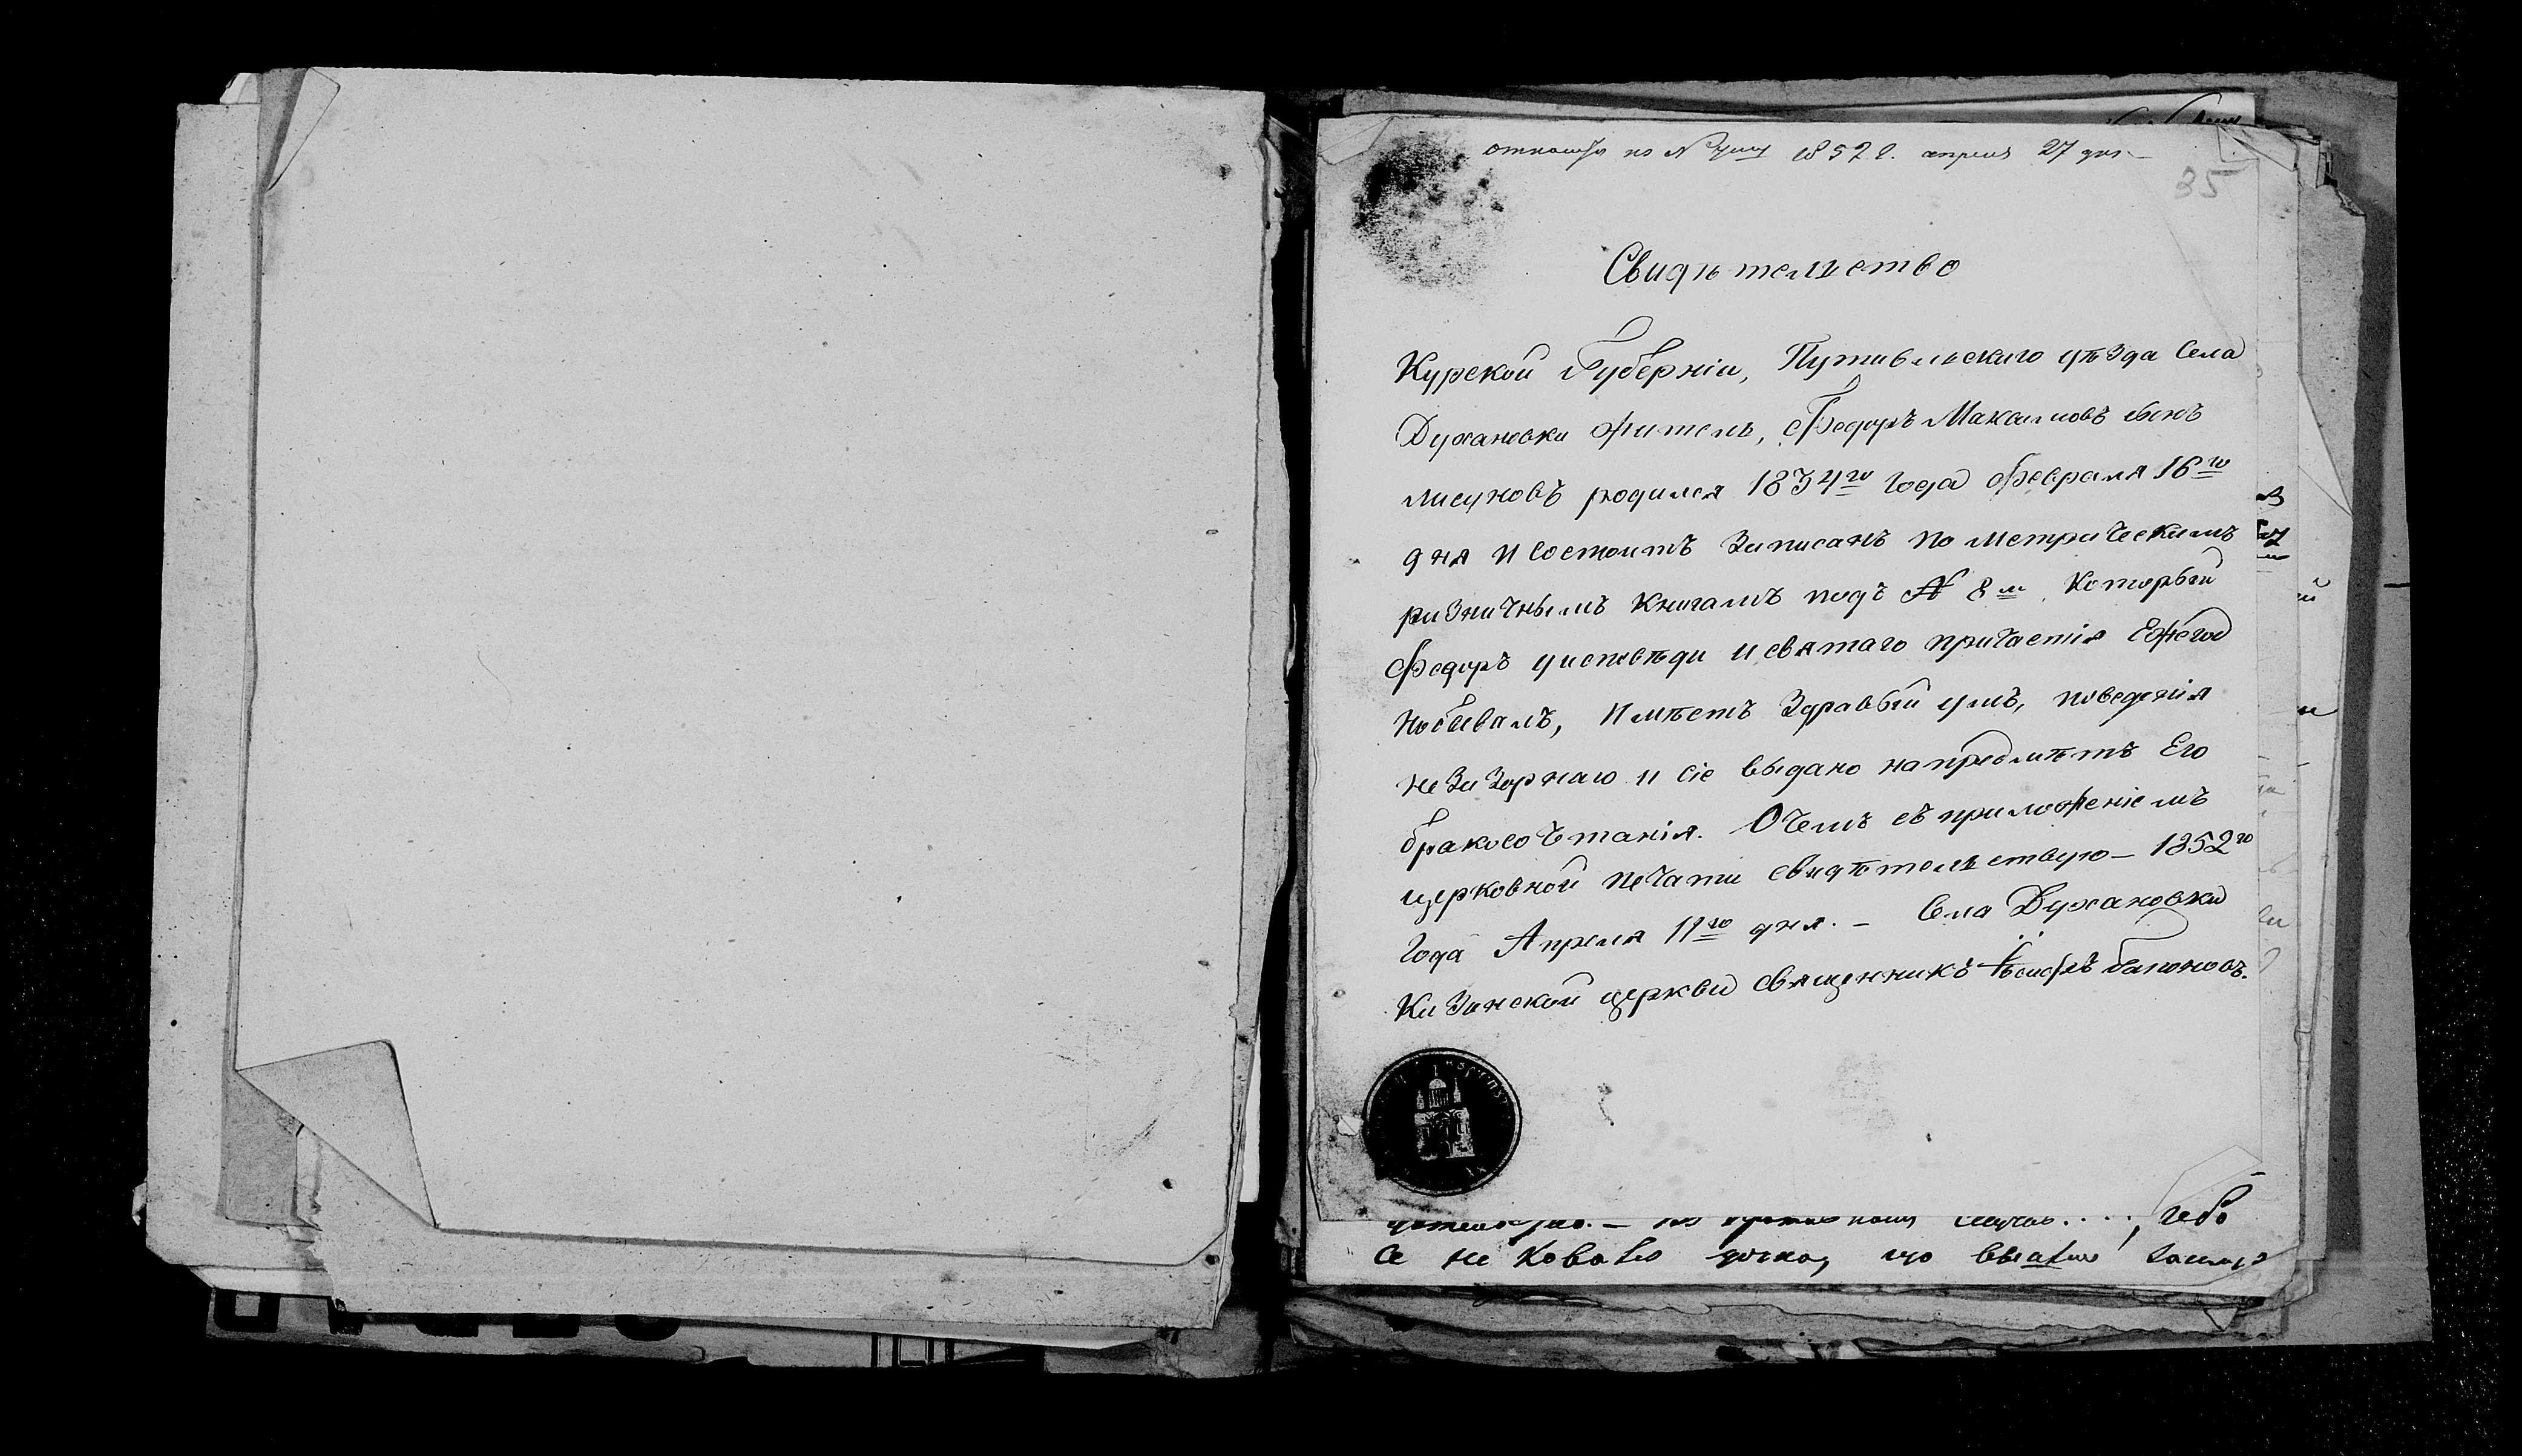 по № 1852 г. апреля 27 дня
35
Свидѣтельство
Курской Губерніи, Путивльскаго уѣзда Села
Духановки житель, Ѳедоръ Максимовъ сынъ
Лисуновъ родился 1834го Года Февраля 16го
дня и состоитъ Записанъ по метрическимъ
ризничнымъ книгамъ подъ № 8м. Который
Федоръ уисповѣди и святаго причастія Ежегод
но бывалъ, Имѣетъ Здравый умъ, поведенія
не Зазорнаго и сіе выдано на предмѣтъ Его
бракосочетанія. О чемъ съ приложеніемъ
церковной печати свидѣтельствую — 1852го
Года Апреля 11го дня. — Села Духановки
Казанской церкви священникъ
се не